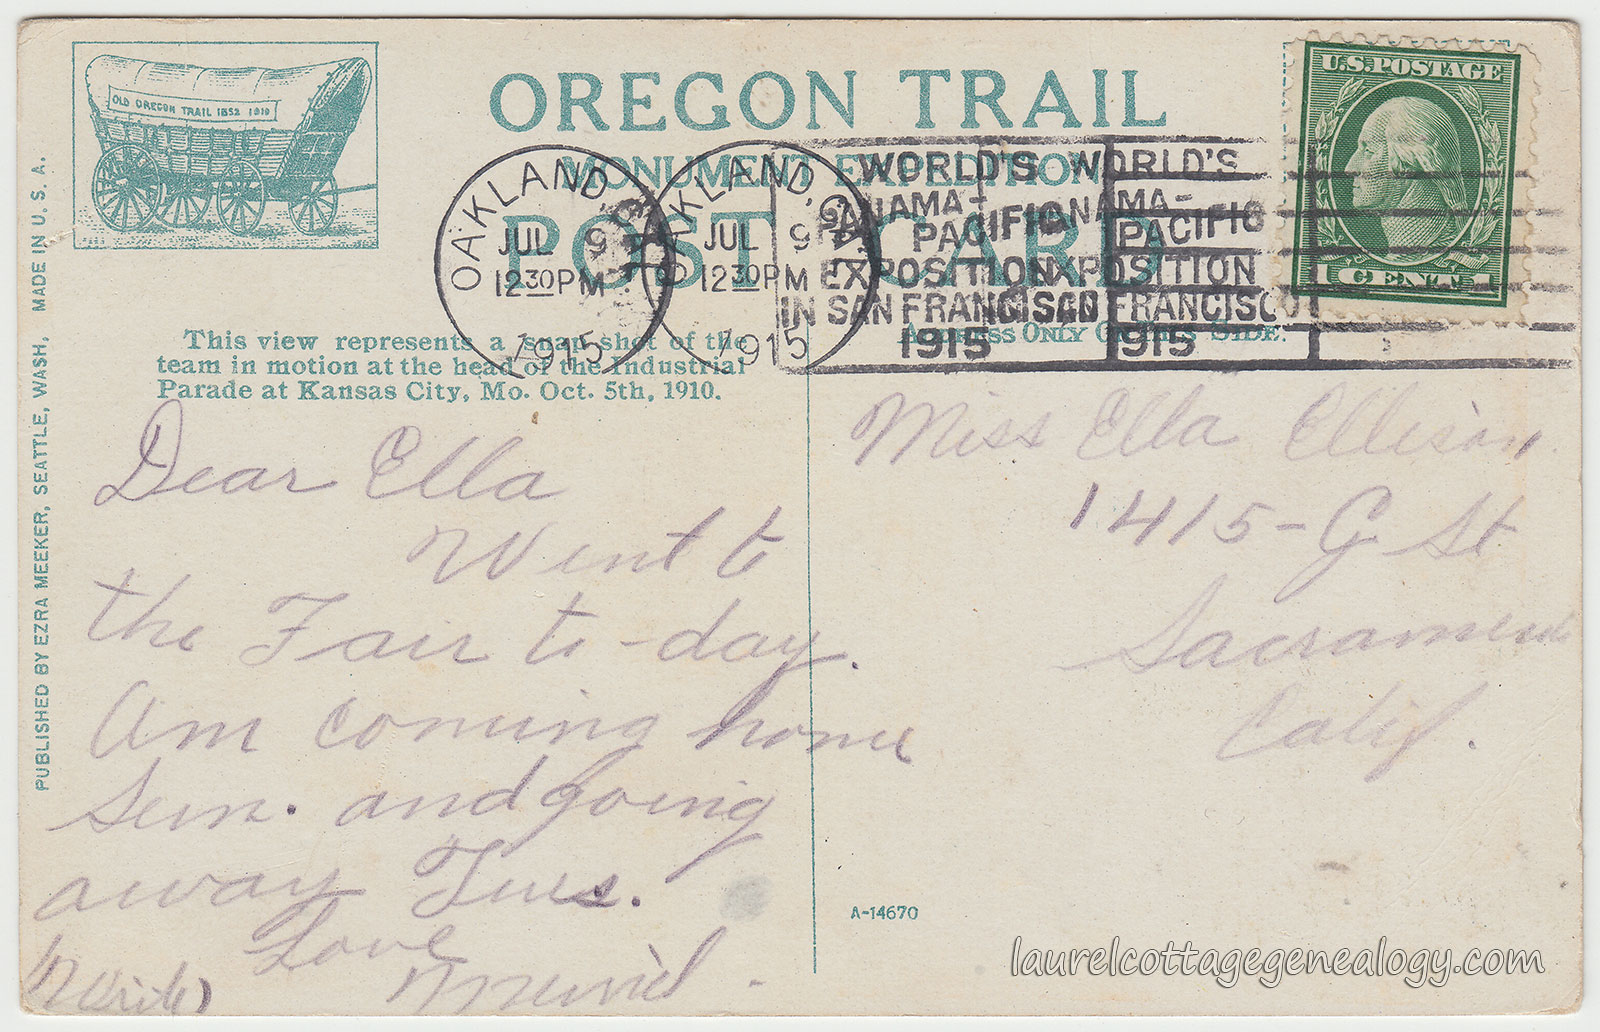 OLD OREGON TRAIL 1852 1910
OREGON TRAIL
MONUMENT EXPEDITION
POST CARD
U.S. POSTAGE
1 CENT 1
OAKLAND, CAL.
JUL 9
12 30 PM
1915
OAKLAND, CAL.
JUL 9
12 30 PM
1915
WORLD'S
PANAMA-
PACIFIC
EXPOSITION
IN SAN FRANCISCO
1915
WORLD'S
PANAMA-
PACIFIC
EXPOSITION
IN SAN FRANCISCO
1915
ADDRESS ONLY ON THIS SIDE.
This view represents a snap shot of the
team in motion at the head of the Industrial
Parade at Kansas City, Mo. Oct. 5th, 1910.
PUBLISHED BY EZRA MEEKER, SEATTLE, WASH, MADE IN U. S. A.
Dear Ella
Went to
the Fair to-day.
Am coming home
Sun. and going
away Tues.
Love
Muriel.
Write
Miss Ella Ellison.
1415-G St
Sacramento
Calif.
A-14670
laurelcottagegenealogy.com